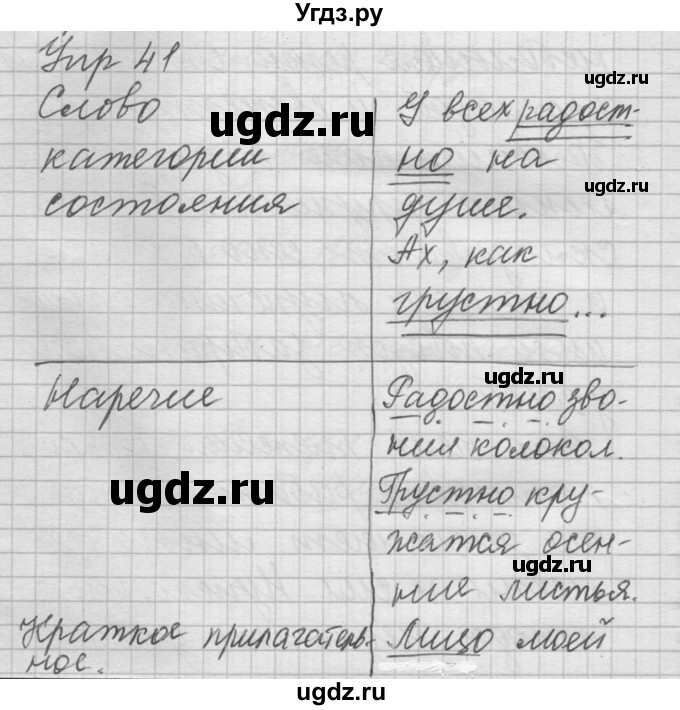 Угдз.ру
Упр 41
Слово
категории
состояния
У всех радост-
но на
душе.
Ах, как
грустно...
Наречие
Радостно зво-
нил колокол.
Грустно кру-
жатся осен-
ние листья.
Краткое прилагатель-
ное.
Лицо моей
ugdz.ru
ugdz.ru
ugdz.ru
ugdz.ru
ugdz.ru
ugdz.ru
ugdz.ru
ugdz.ru